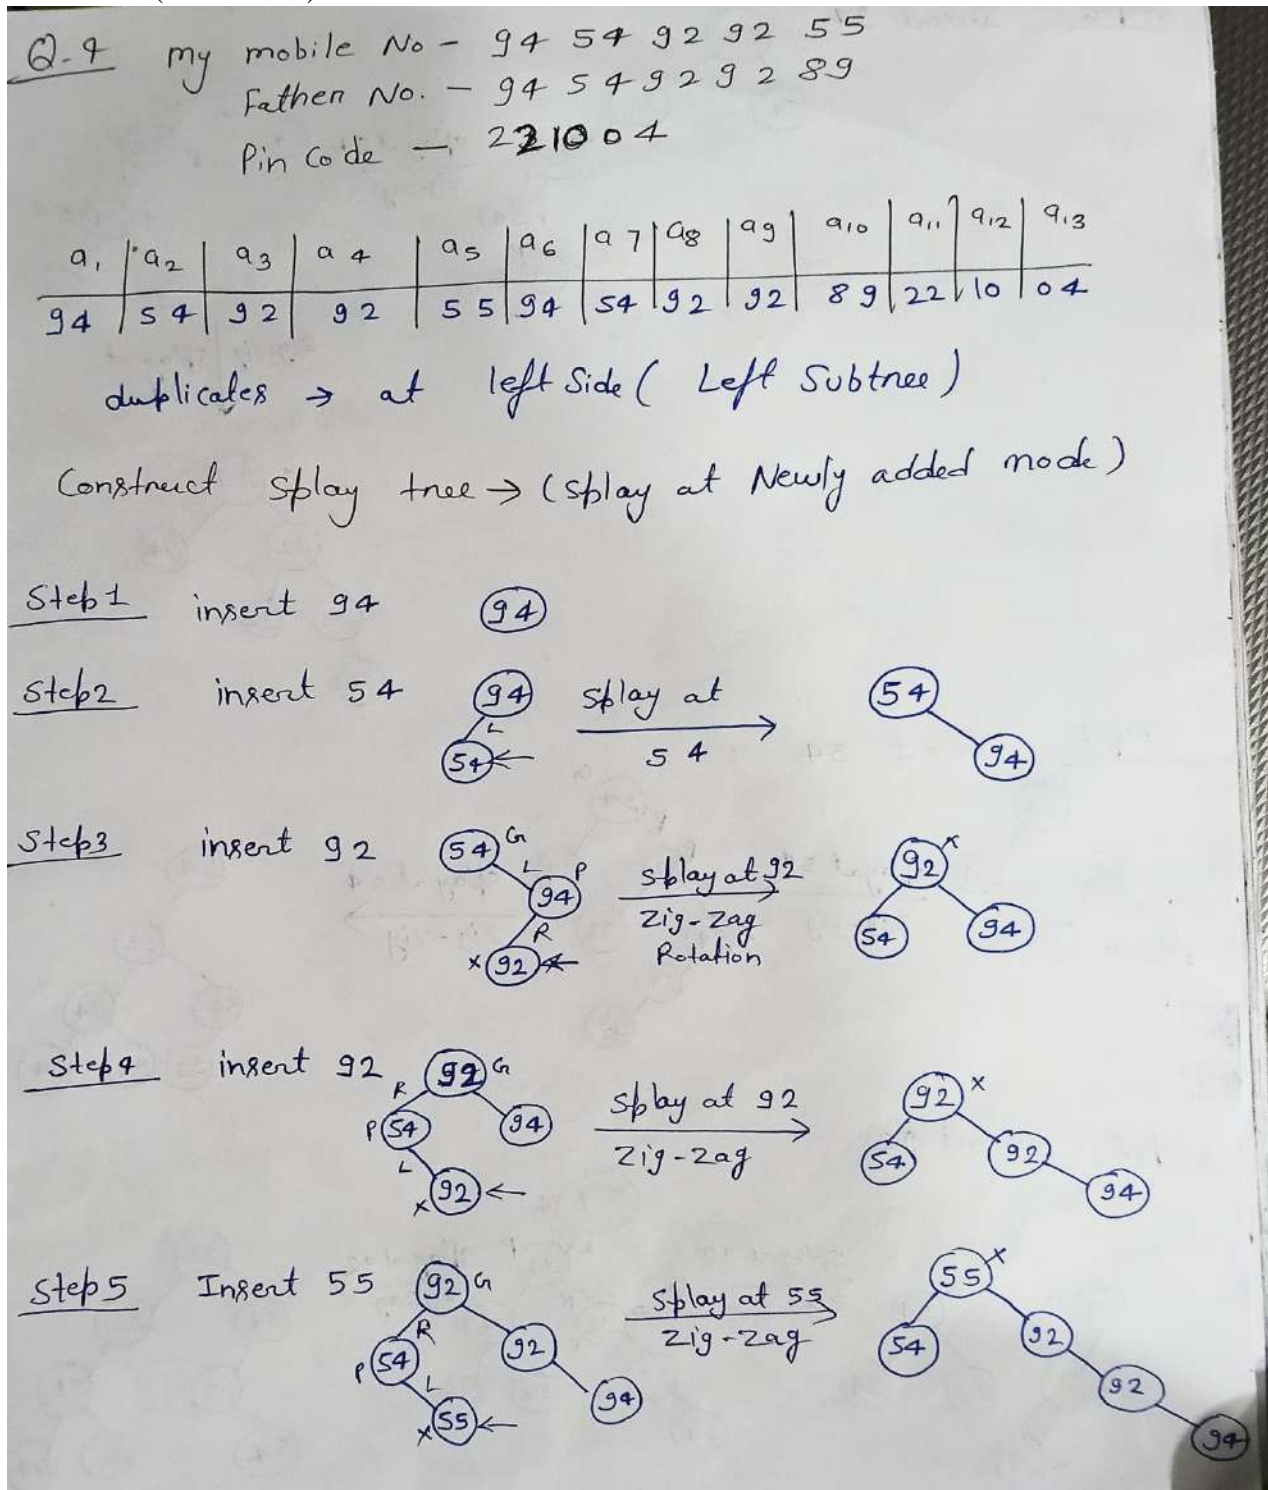 Q.4 my mobile No - 94 54 92 92 55
Father No. - 94 5 4 9 2 9 2 89
Pin Code - 221004
a1 a2 a3 a4 a5 a6 a7 a8 a9 a10 a11 a12 a13
94 54 92 92 55 94 54 92 92 89 22 10 04
duplicates → at left Side ( Left Subtree )
Construct Splay tree → (Splay at Newly added node)
Step1 insert 94 94
Step2 insert 54 94 Splay at 54
L
54 5 4 94
Step3 insert 92 54 G splay at 92 92 x
L P
94 Zig-Zag 54 94
R Rotation
x 92
Step4 insert 92 92 G Splay at 92 92 x
R
P 54 94 Zig-Zag 54 92
L
x 92 94
Step5 Insert 55 92 G Splay at 55 55 x
R
P 54 92 Zig-Zag 54 92
L
x 55 94 92
94